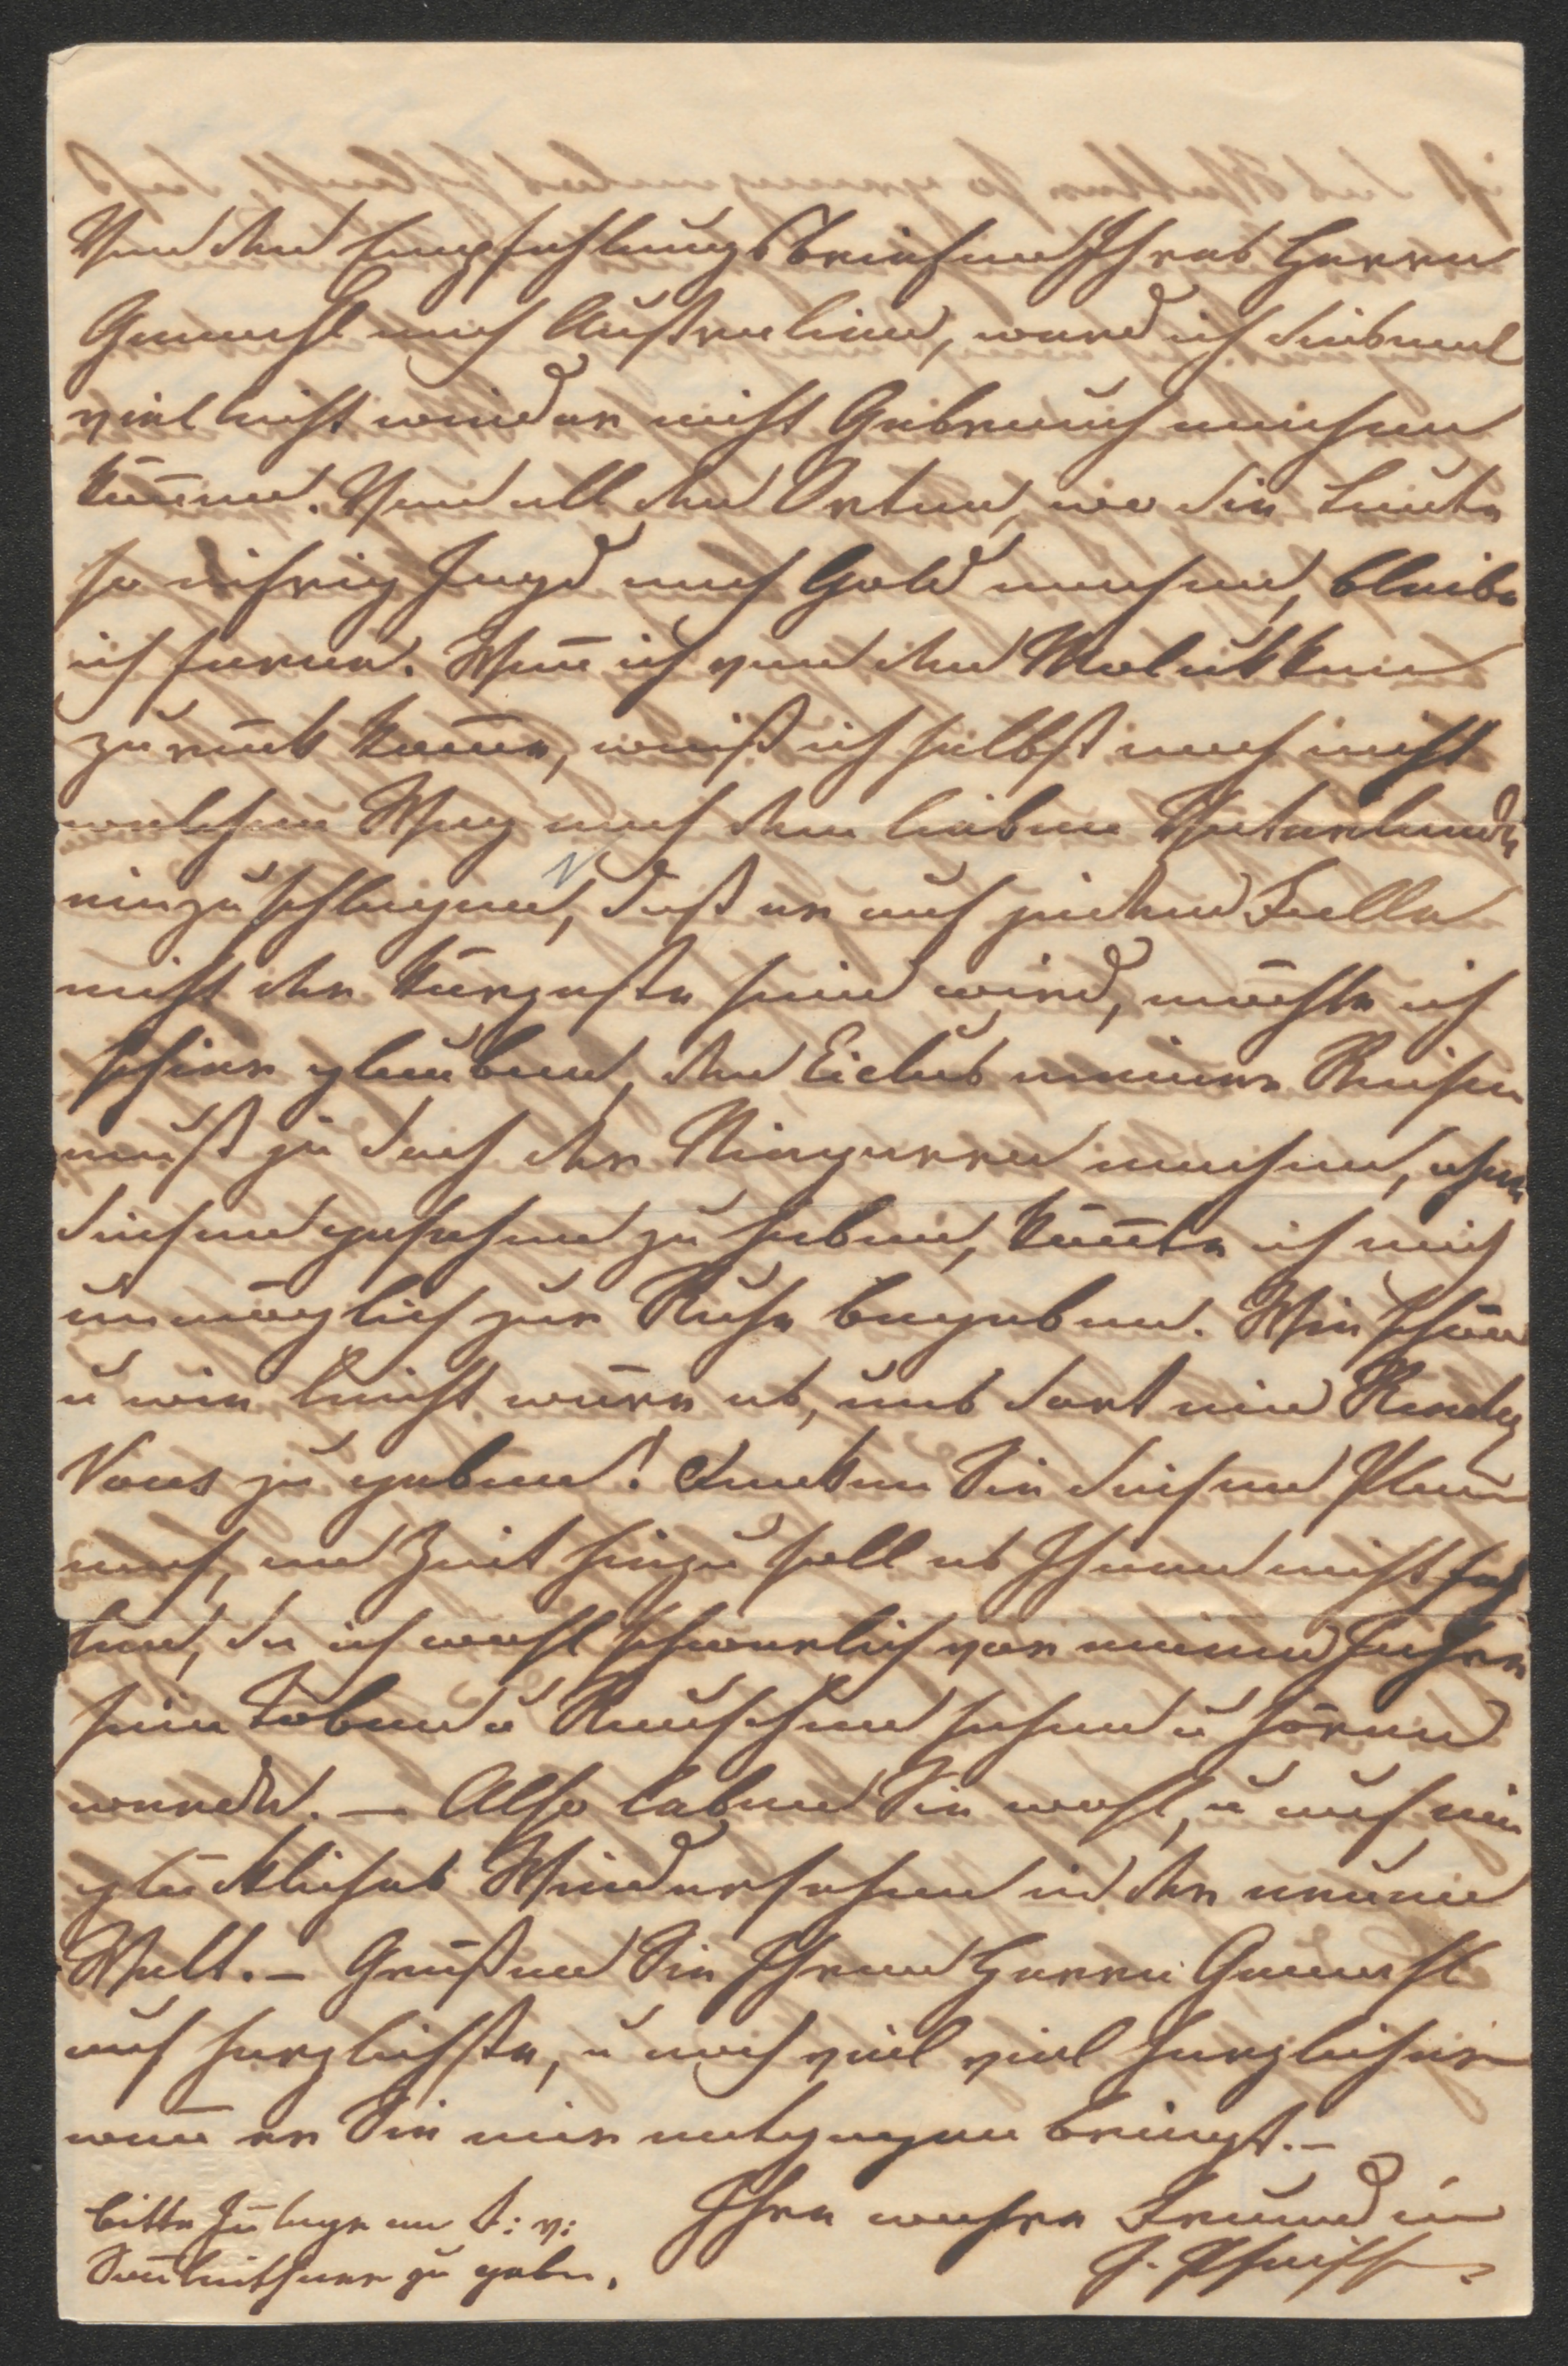 Von den Empfehlungsbriefen Ihres Herrn
Gemahl nach Australien, werd ich diesmal
vielleicht wieder nicht Gebrauch machen
können. Von all den Orten, wo die Leute
so eifrig Jagd nach Gold machen, bleibe
ich ferne. Wen̄ ich von den Molukken
zurück kom̄e, weiß ich selbst noch nicht
welchen Weg nach dem lieben Vaterlande
einzuschlagen, daß er auf jeden Falle
nicht der kürzeste sein wird, möchte ich
schier glauben, den Ciclus meiner Reisen
muß ja doch der Niagarra machen, ohne
diesen gesehen zu haben, kön̄te ich mich
unmöglich zur Ruhe begeben. Wie schön
u wie leicht wäre es, uns dort ein Rendez
Vous zu geben! Denken Sie diesem Plan
nach, an Zeit hiezu soll es Ihnen nicht feh
len, da ich wohl schwerlich vor einem Jahre
sein Toben u Rauschen sehen u hören
werde. — Also leben Sie wohl, u auf ein
glückliches Wiedersehen in der neuen
Welt. — Grüßen Sie Ihren Herrn Gemahl
auf herzlichste, u noch viel viel herzlicher
wen̄ er Sie mir entgegen bringt. —
Ihre wahre Freundin
J. Pfeiffer
bitte Einlage an F: v:
Sauleithner zu geben.